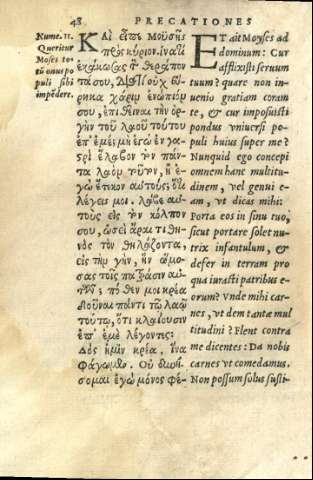 48 PRECATIONES
Nume. 11.
Queritur
Moses to-
tū onus po
puli sibi
impēdere.
Καὶ εἶπε Μουσῆς
πρὸς κύριον. ἱνατί
ἐκάκωσας τ̀ θεράπον
τα σου, Διατί οὐχ εὕ-
ρηκα χάριν ἐνώπιόν
σου, ἐπιθεῖναι τὴν ὀρ-
γὴν τοῦ λαοῦ τούτου
ἐπ᾽ ἐμέ; μὴ ἐγὼ ἐν γα-
στρὶ ἔλαβον τὸν πάν-
τα λαὸν τοῦτον, ἢ ἐ-
γὼ ἔτικον αὐτούς; ὅτι
λέγεις μοι. λάβε αὐ-
τοὺς εἰς τὸν κόλπον
σου, ὡσεὶ ἄραι τιθη-
νὸς τὸν θηλάζοντα,
εἰς τὴν γῆν, ἣν ὤμο-
σας τοῖς πατράσιν αὐ-
τῶν; πόθεν μοι κρέα
δοῦναι παντὶ τῷ λαῷ
τούτῳ, ὅτι κλαίουσιν
ἐπ᾽ ἐμὲ λέγοντες·
Δὸς ἡμῖν κρέα, ἵνα
φάγωμεν. Οὐ δυνή-
σομαι ἐγὼ μόνος φέ-
ET ait Moyses ad
dominum: Cur
afflixisti seruum
tuum? quare non in-
uenio gratiam coram
te, & cur imposuisti
pondus vniuersi po-
puli huius super me?
Nunquid ego concepi
omnem hanc multitu-
dinem, vel genui e-
am, vt dicas mihi:
Porta eos in sinu tuo,
sicut portare solet nu-
trix infantulum, &
defer in terram pro
qua iurasti patribus e-
orum? Vnde mihi car-
nes, vt dem tantæ mul
titudini? Flent contra
me dicentes: Da nobis
carnes vt comedamus.
Non possum solus susti-